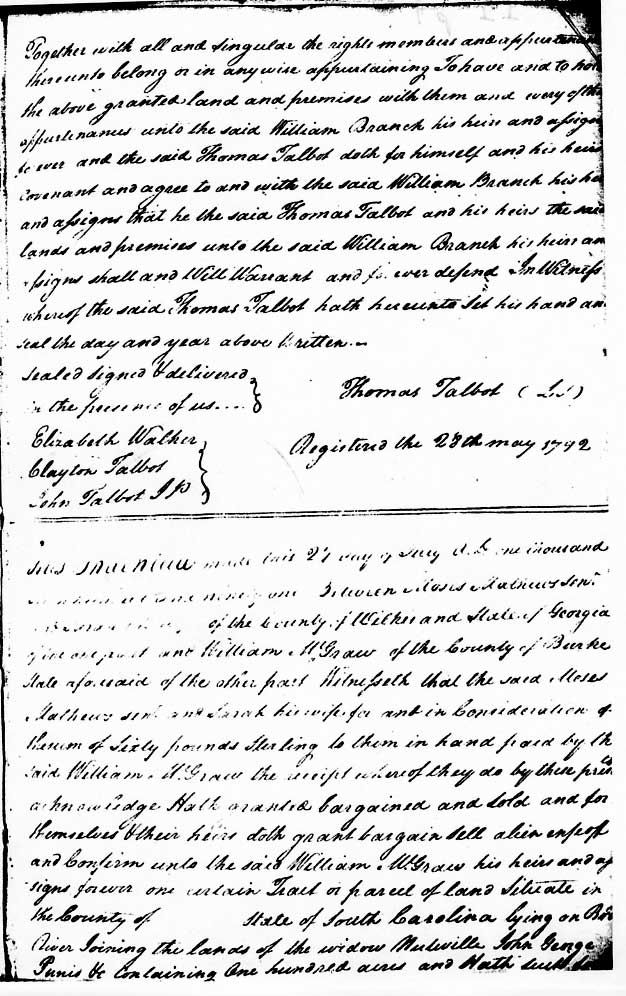 Together with all and singular the rights members and appurtenan
thereunto belong or in any wise appurtaining To have and to hol
the above granted land and premises with them and every of the
appurtenances unto the said William Branch his heirs and assigns
for ever and the said Thomas Talbot doth for himself and his heirs
Covenant and agree to and with the said William Branch his he
and assigns that he the said Thomas Talbot and his heirs the said
lands and premises unto the said William Branch his heirs an
assigns shall and Will Warrant and for ever defend In Witness
whereof the said Thomas Talbot hath hereunto Set his hand an
seal the day and year above Written
Sealed Signed & delivered
in the presence of us....
Thomas Talbot (LS)
Elizabeth Walker
Registered the 28th may 1792
Clayton Talbot
John Talbot J P
This Indenture made this 27 day of one thousand
ninety one Between Moses Mathews senr
of the County of Wilkes and State of Georgia
of one part and William McGraw of the County of Burke
State aforesaid of the other part Witnesseth that the said Moses
Mathews senr and Sarah his wife for and in Consideration of
the sum of Sixty pounds Sterling to them in hand paid by th
said William McGraw the receipt whereof they do by these pres
acknowledge Hath granted bargained and sold and for
themselves & their heirs doth grant bargain sell alien enfeoff
and Confirm unto the said William McGraw his heirs and as
signs forever one certain Tract or parcel of land Situate in
the County of State of South Carolina lying on
River Joining the lands of the widow John George
&c Containing One hundred acres and Hath such